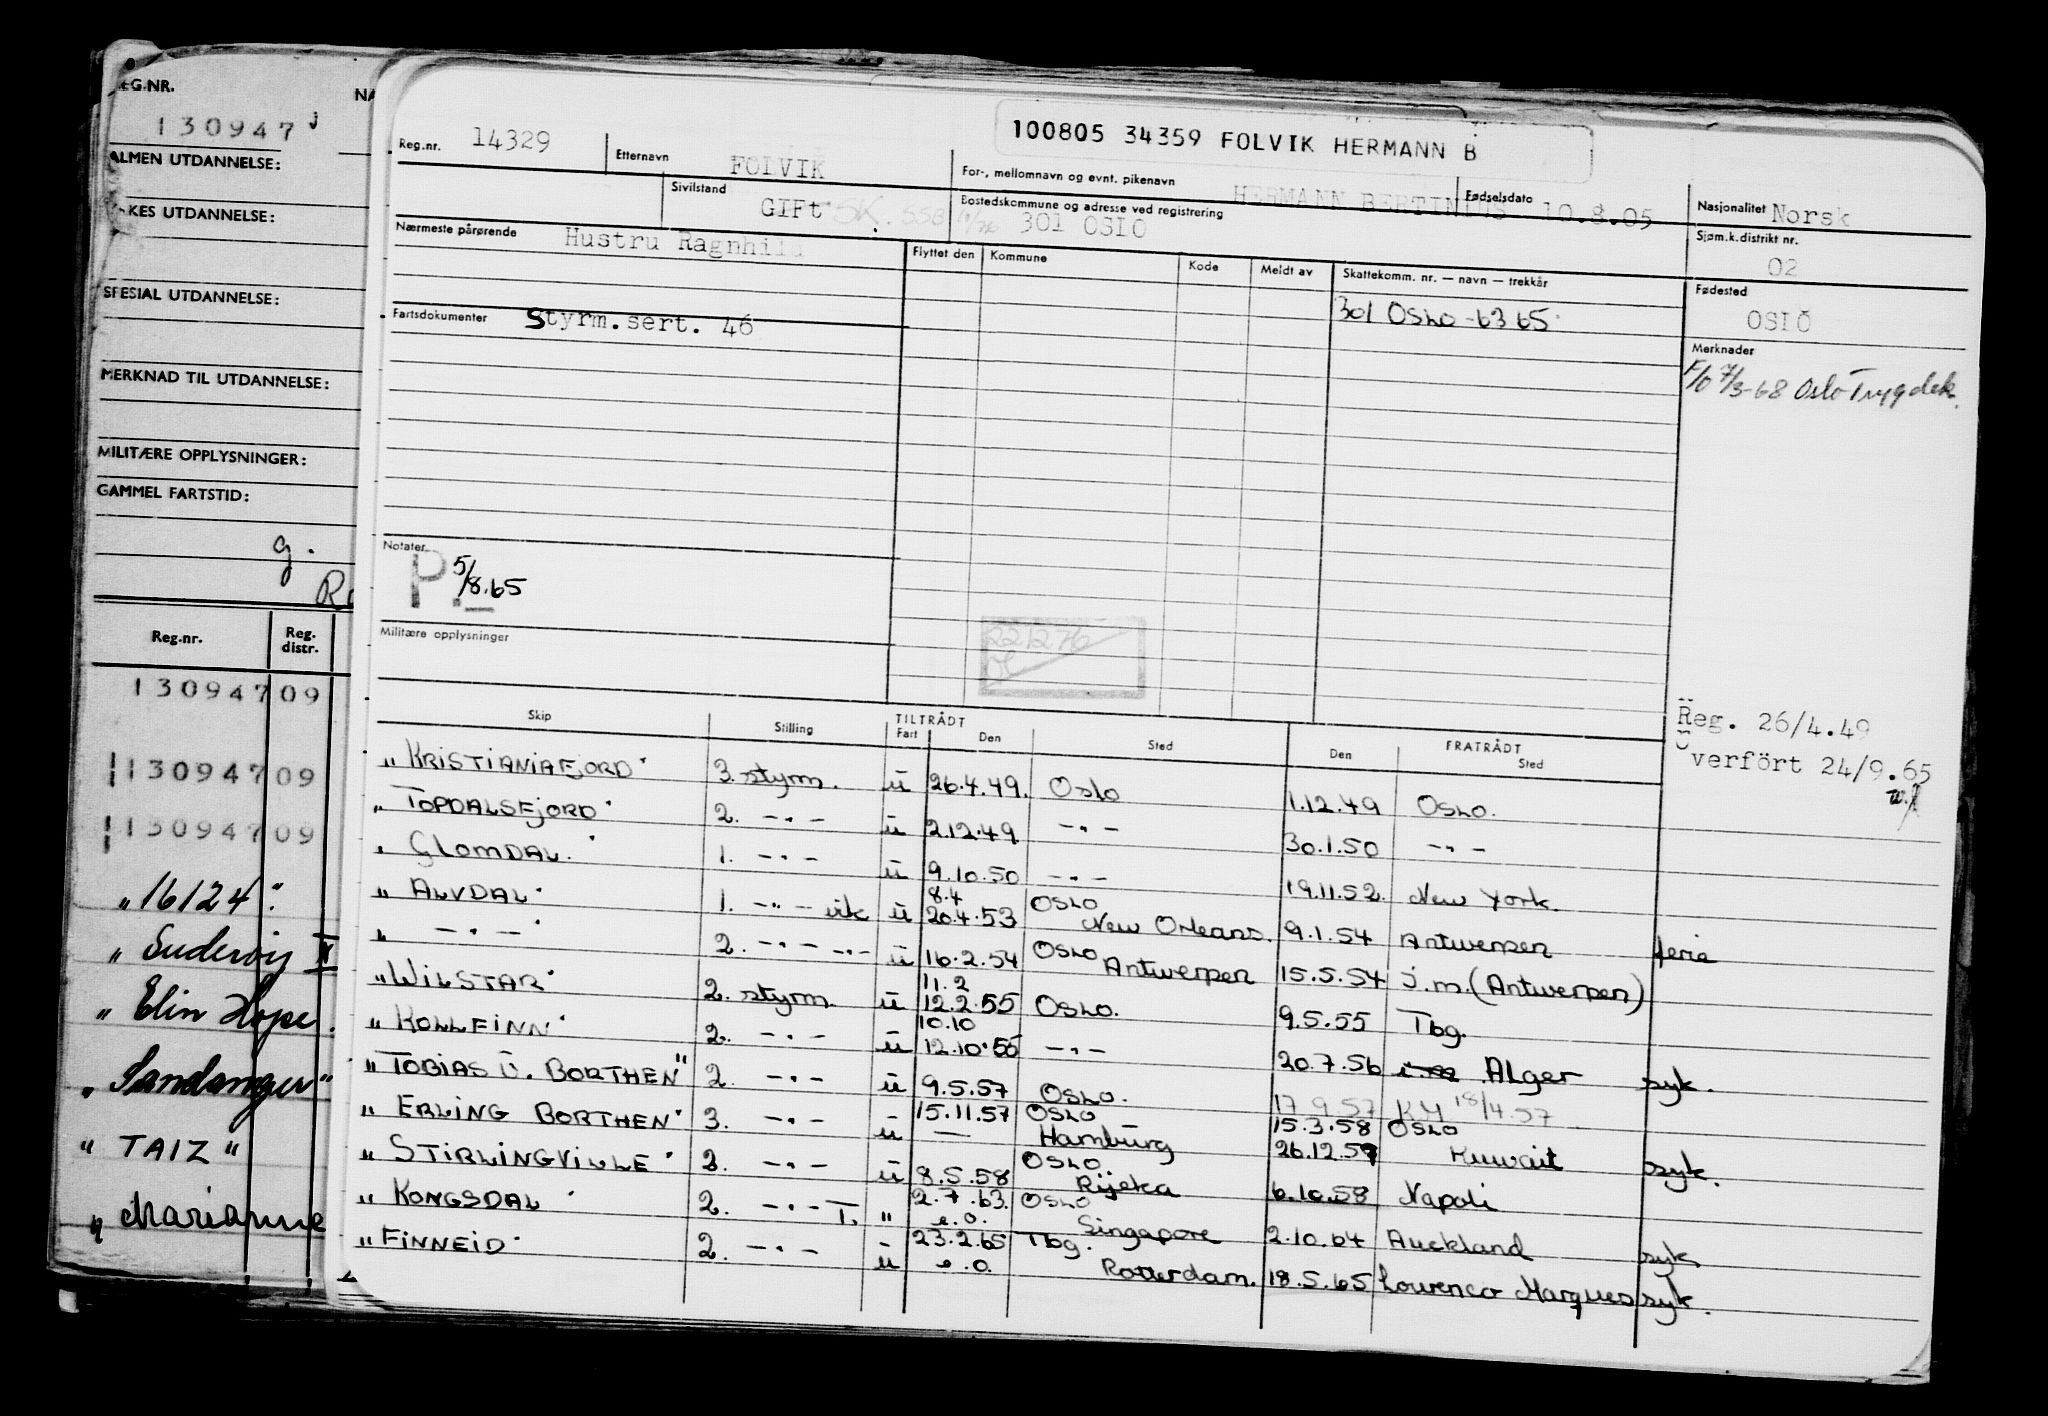 REG.NR.
130947 j
ALMEN UTDANNELSE:
KES UTDANNELSE:
SPESIAL UTDANNELSE:
MERKNAD TIL UTDANNELSE:
MILITÆRE OPPLYSNINGER:
GAMMEL FARTSTID:
g.
Reg.nr. Reg. distr.
130947 09
130947 09
130947 09
"16124"
"Suderöy
"Elin Hope
"Sandanger"
"TAIZ"
"Marianne
100805 34359 FOLVIK HERMANN B
Reg.nr. 14329 Etternavn FOLVIK For-, mellomnavn og evnt. pikenavn HERMANN BERTINIUS Fødselsdato 10.8.05 Nasjonalitet Norsk
Sivilstand GIFt SK. Bostedskommune og adresse ved registrering 301 OSlO Sjøm.k.distrikt nr. 02
Nærmeste pårørende Hustru Ragnhild Flyttet den Kommune Kode Meldt av Skattekomm. nr. — navn — trekkår Fødested OSlO
301 OSLO -63 65
Fartsdokumenter Styrm.sert. 46
Merknader
F/O 7/3-68 Oslo Trygdek.
Notater P. 5/8.65
221276
Militære opplysninger
Reg. 26/4.49
Överfört 24/9.65
Skip Stilling TILTRÅDT Fart Den Sted FRATRÅDT Den Sted
"KRISTIANIAFJORD" 3. styrm. u 26.4.49. Oslo 1.12.49 OSLO.
"TOPDALSFJORD" 2. —"— u 2.12.49 —"— 30.1.50 —"—
"GLOMDAL" 1. —"— u 9.10.50 —"— 19.11.52. New York.
"ALVDAL" 1. —"— vik u 8.4 20.4.53 OSLO New Orleans. 9.1.54 Antwerpen feria
" —"— " 2. —"— —"— u 16.2.54 OSLO Antwerpen 15.5.54 j.m. (Antwerpen)
"WILSTAR" 2. styrm u 11.2 12.2.55 OSLO. 9.5.55 Tbg.
"KOLLFINN" 2. —"— u 10.10 12.10.55 —"— 20.7.56 ALger syk.
"TOBIAS U. BORTHEN" 2. —"— u 9.5.57 OSLO. 17.9.57 KM 18/4.57
"ERLING BORTHEN" 3. —"— - u 15.11.57 — OSLO Hamburg 15.3.58 OSLO
"STIRLINGVILLE" 2. —"— u 8.5.58 OSLO. Rijeka 26.12.59 Kuwait syk.
6.10.58 Napoli
"KONGSDAL" 2. —"— T. " 2.7.63. e.o. OSLO Singapore 2.10.64 Auckland syk
"FINNEID" 2. —"— - u 23.2.65 e.o. Tbg. Rotterdam. 18.5.65 Lourenco Marques syk.